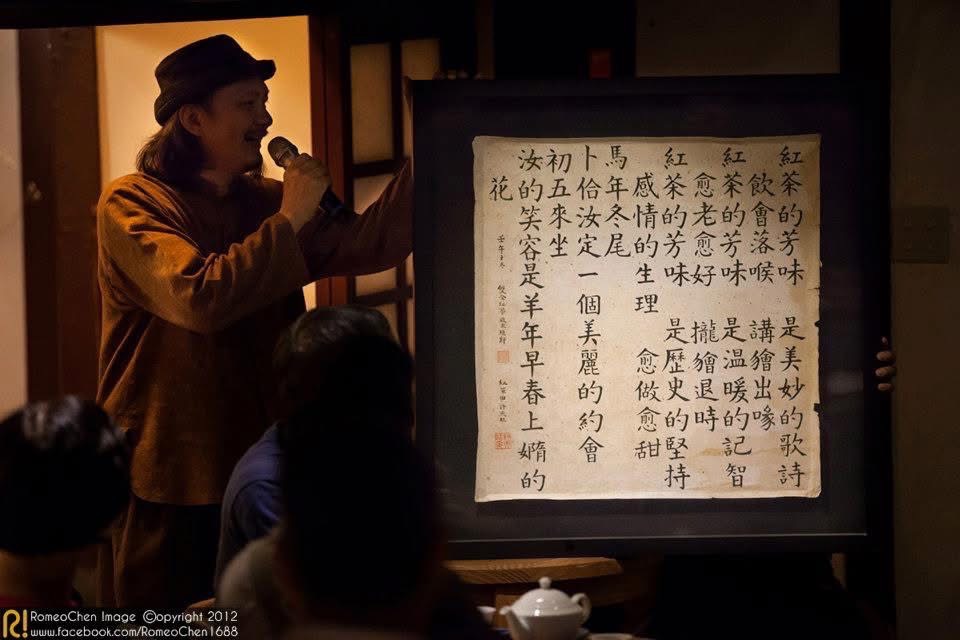 紅茶的芳味 是美妙的歌詩
飲會落喉 講𣍐出喙
紅茶的芳味 是溫暖的記智
愈老愈好 攏𣍐退時
紅茶的芳味 是歷史的堅持
感情的生理 愈做愈甜
馬年冬尾
卜佮汝定一個美麗的約會
初五來坐
汝的笑容是羊年早春上嫷的
花
R!
RomeoChen Image ©opyright 2012
www.facebook.com/RomeoChen1688